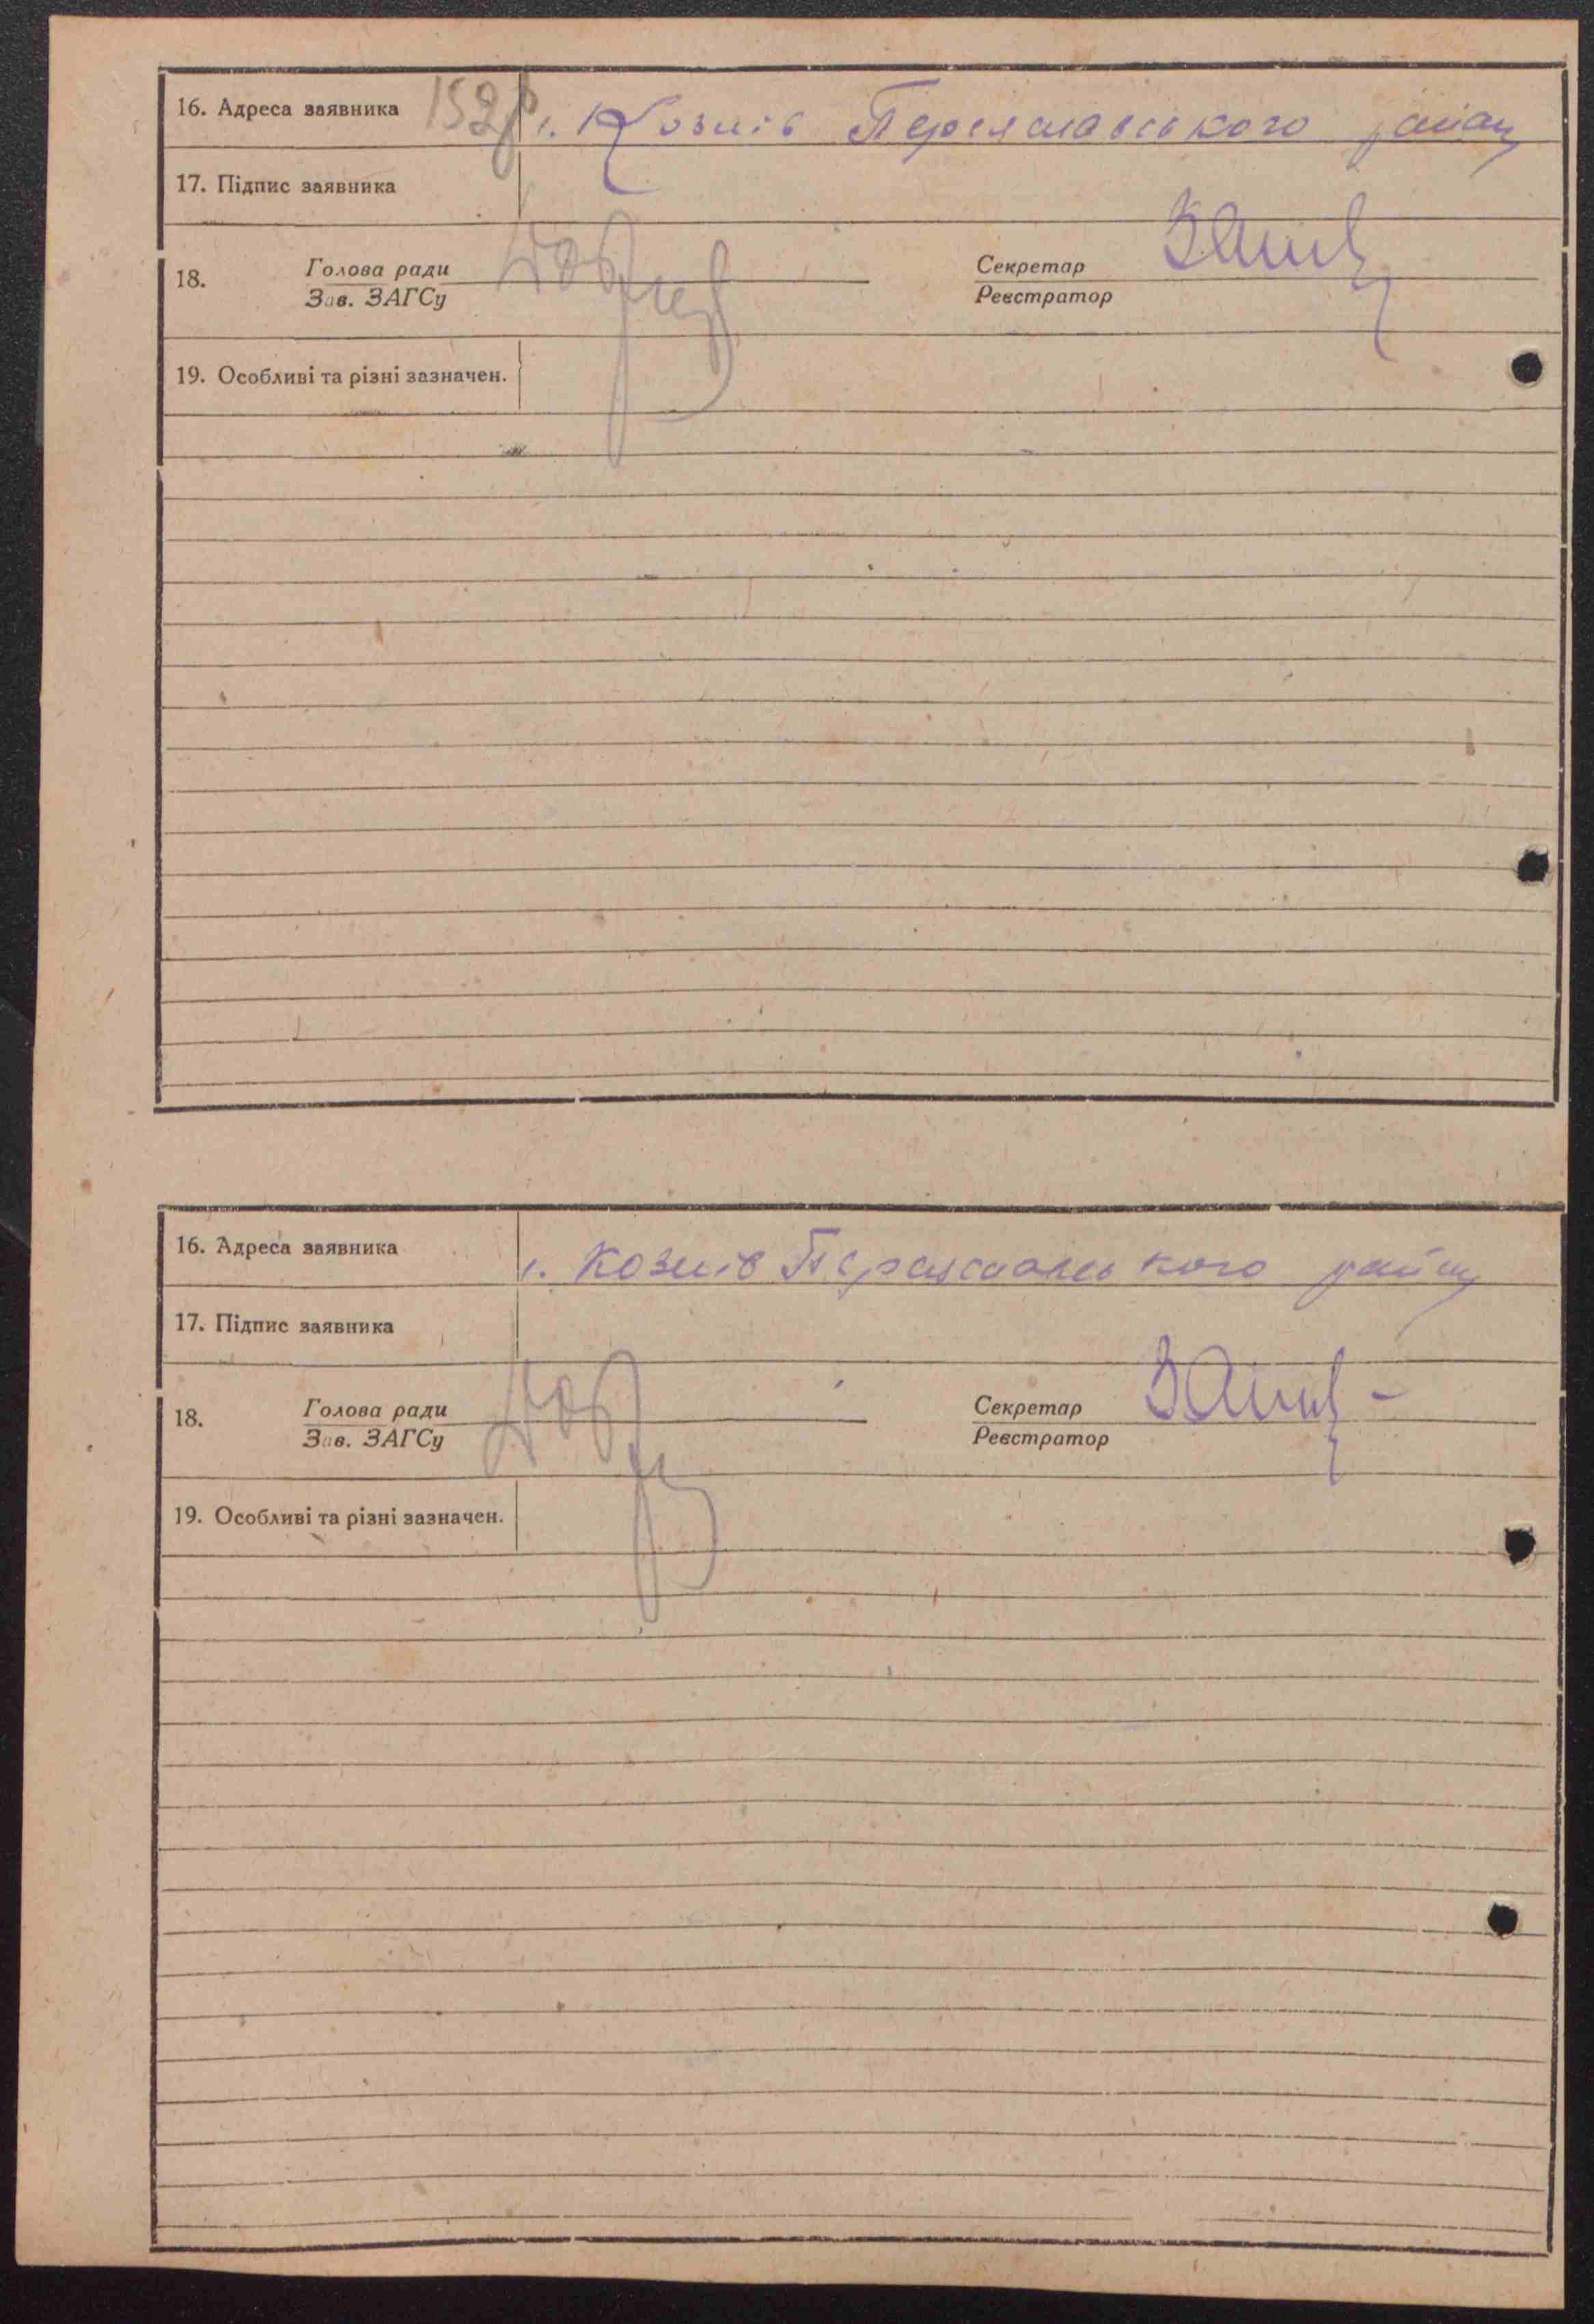 16. Адреса заявника 152 с. Козлів Переяславського району
17. Підпис заявника
18. Голова ради Секретар
Зав. ЗАГСу Реєстратор
19. Особливі та різні зазначен.
16. Адреса заявника с. Козлів Переяславського району
17. Підпис заявника
18. Голова ради Секретар
Зав. ЗАГСу Реєстратор
19. Особливі та різні зазначен.